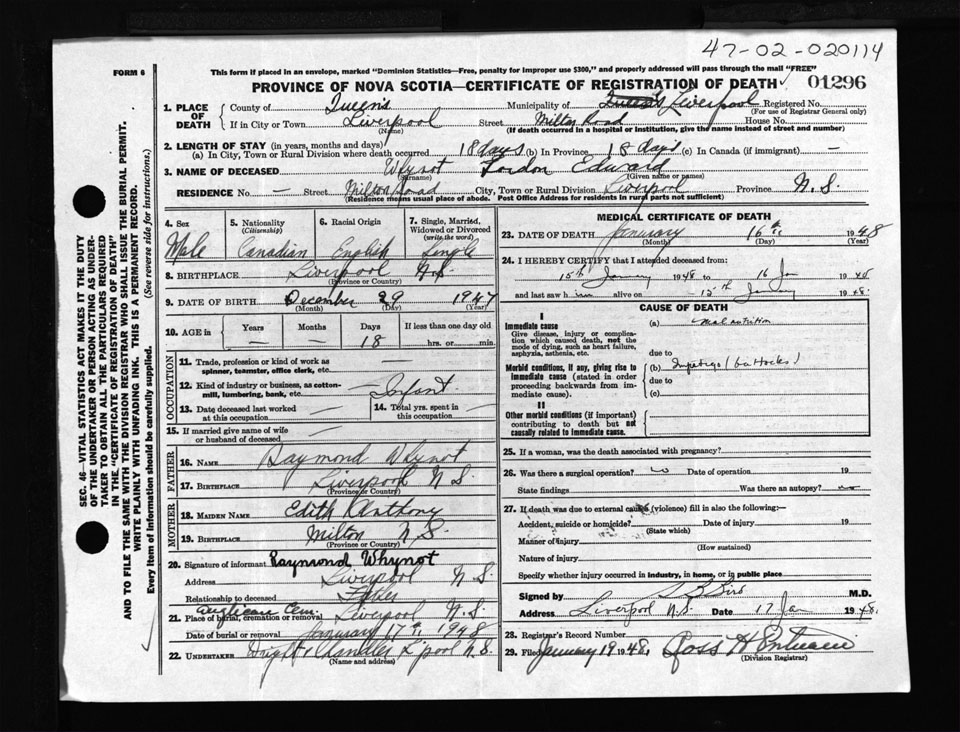 47-02-020114
FORM 6
This form if placed in an envelope, marked "Dominion Statistics—Free, penalty for improper use $300," and properly addressed will pass through the mail "FREE"
PROVINCE OF NOVA SCOTIA—CERTIFICATE OF REGISTRATION OF DEATH 01296
1. PLACE OF DEATH County of Queens Municipality of Liverpool Registered No. (For use of Registrar General only)
If in City or Town Liverpool (Name) Street Milton Road House No.
(If death occurred in a hospital or institution, give the name instead of street and number)
2. LENGTH OF STAY (in years, months and days)
(a) In City, Town or Rural Division where death occurred 18 days (b) In Province 18 days (c) In Canada (if immigrant) —
3. NAME OF DECEASED Whynot (Surname) Edward (Given name or names)
RESIDENCE No. — Street Milton Road City, Town or Rural Division Liverpool Province N.S.
(Residence means usual place of abode. Post Office Address for residents in rural parts not sufficient)
4. Sex Male
5. Nationality (Citizenship) Canadian
6. Racial Origin English
7. Single, Married, Widowed or Divorced (write the word) Single
8. BIRTHPLACE Liverpool N.S. (Province or Country)
9. DATE OF BIRTH December 29 1947
(Month) (Day) (Year)
10. AGE in Years — Months — Days 18 If less than one day old hrs. or min.
OCCUPATION
11. Trade, profession or kind of work as spinner, teamster, office clerk, etc. —
12. Kind of industry or business, as cotton-mill, lumbering, bank, etc. Infant
13. Date deceased last worked at this occupation —
14. Total yrs. spent in this occupation —
15. If married give name of wife or husband of deceased —
FATHER
16. NAME Raymond Whynot
17. BIRTHPLACE Liverpool N S. (Province or Country)
MOTHER
18. MAIDEN NAME Edith Anthony
19. BIRTHPLACE Milton N.S. (Province or Country)
20. Signature of informant Raymond Whynot
Address Liverpool N S.
Relationship to deceased Father
21. Place of burial, cremation or removal Anglican Cem. Liverpool N.S.
Date of burial or removal January 17th 1948
22. UNDERTAKER Chandler L'pool N.S.
(Name and address)
MEDICAL CERTIFICATE OF DEATH
23. DATE OF DEATH January 16th 1948
(Month) (Day) (Year)
24. I HEREBY CERTIFY that I attended deceased from:
15th January 1948 to 16 Jan 1948
and last saw him alive on 15th January 1948.
CAUSE OF DEATH
I
Immediate cause
Give disease, injury or complication which caused death, not the mode of dying, such as heart failure, asphyxia, asthenia, etc.
(a) malnutrition
due to
Morbid conditions, if any, giving rise to immediate cause (stated in order proceeding backwards from immediate cause).
(b) Impetigo (buttocks)
due to
(c)
II
Other morbid conditions (if important) contributing to death but not causally related to immediate cause.
25. If a woman, was the death associated with pregnancy?
26. Was there a surgical operation? no Date of operation 19
State findings Was there an autopsy? no
27. If death was due to external causes (violence) fill in also the following:—
Accident, suicide or homicide? (State which) Date of injury 19
Manner of injury (How sustained)
Nature of injury
Specify whether injury occurred in industry, in home, or in public place
Signed by M.D.
Address Liverpool N.S. Date 17 Jan 1948.
28. Registrar's Record Number
29. Filed January 19 1948. Ross H
(Division Registrar)
SEC. 46—VITAL STATISTICS ACT MAKES IT THE DUTY
OF THE UNDERTAKER OR PERSON ACTING AS UNDER-
TAKER TO OBTAIN ALL THE PARTICULARS REQUIRED
IN THE "CERTIFICATE OF REGISTRATION OF DEATH"
AND TO FILE THE SAME WITH THE DIVISION REGISTRAR WHO SHALL ISSUE THE BURIAL PERMIT.
WRITE PLAINLY WITH UNFADING INK. THIS IS A PERMANENT RECORD.
Every item of information should be carefully supplied. (See reverse side for instructions.)